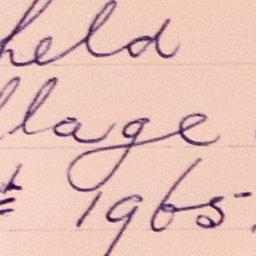 held
llage
t 1965.